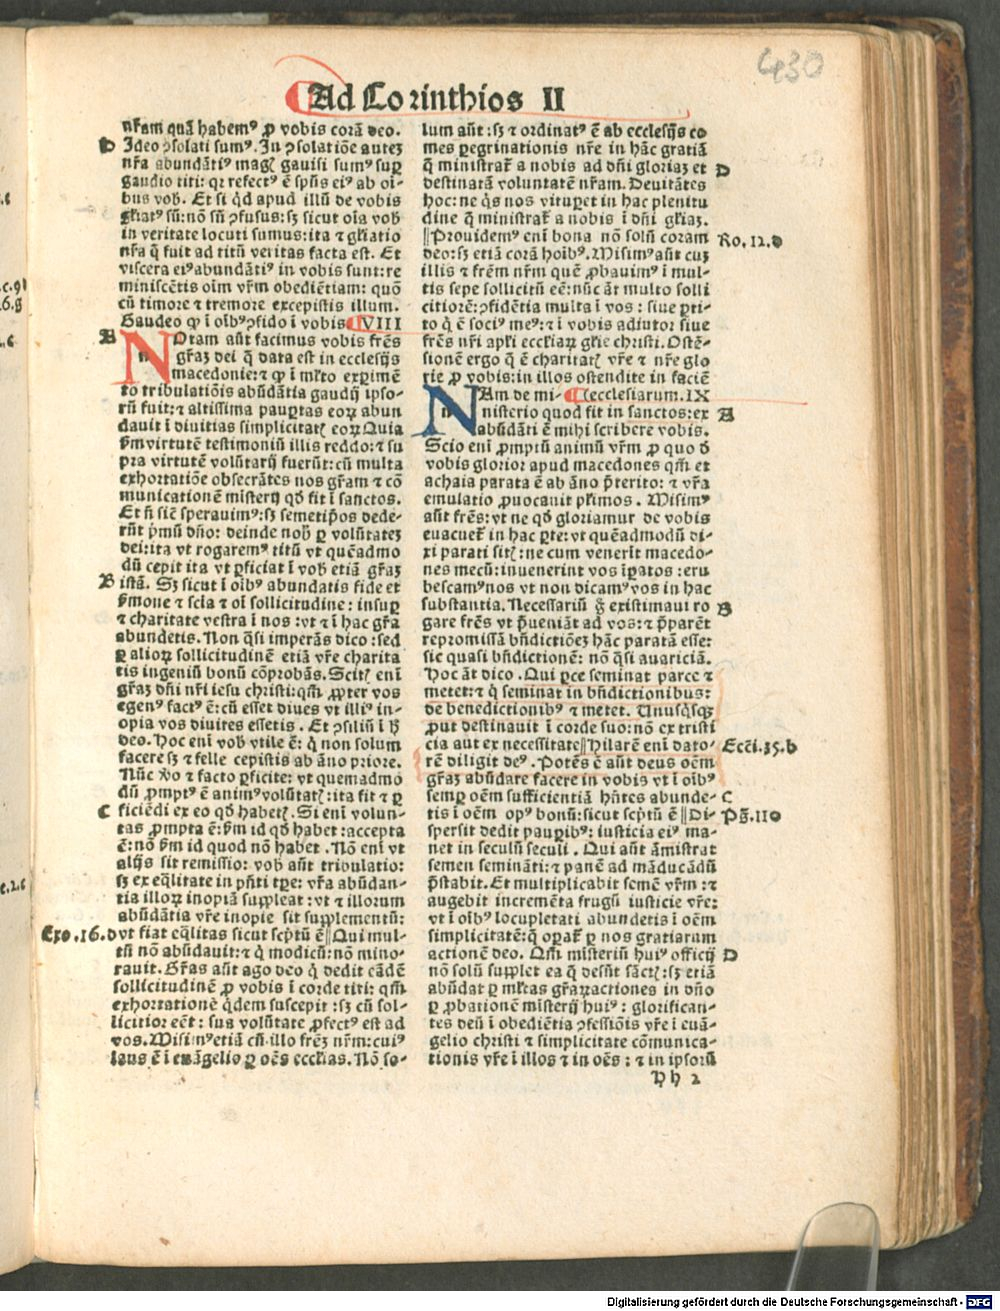 430
Ad Corinthios II
nr̃am quā habemꝰ ꝓ vobis corā deo.
D Ideo ↄsolati sumꝰ. In ↄsolatiōe autez
nr̃a abundātiꝰ magꝭ gauisi sumꝰ suꝑ
gaudio titi: qꝛ refectꝰ ē sp̄us eiꝰ ab oī-
bus vob̄. Et si q̇d apud illū de vobis
gl̄iatꝰ sū: nō sū ↄfusus: sꝫ sicut oīa vob̄
in veritate locuti sumus: ita ⁊ gl̄iatio
nr̃a q̄ fuit ad titū veritas facta est. Et
viscera eiꝰ abundātiꝰ in vobis sunt: re
miniscētis oīm vr̄m obediētiam: quō
cū timore ⁊ tremore excepistis illum.
Gaudeo ꝙ ī oībꝰ ↄfido ī vobis. VIII
A NOtam aūt facimus vobis fr̄es
gr̄aꝫ dei q̄ data est in ecclesijs
macedonie: ⁊ ꝙ ī ml̄to exꝑimē
to tribulatiōis abūdātia gaudij ipso-
rū fuit: ⁊ altissima pauꝑtas eoꝝ abun
dauit ī diuitias simplicitatꝭ eoꝝ Quia
ẜm virtutē testimoniū illis reddo: ⁊ su
pra virtutē volūtarij fuerūt: cū multa
exhortatiōe obsecrātes nos gr̄am ⁊ cō
municationē mīsterij qd̄ fit ī sanctos.
Et ñ sic̄ sperauimꝰ: sꝫ semetip̄os dede-
rūt p̄mū dn̄o: deinde nob̄ ꝑ volūtatez
dei: ita vt rogaremꝰ titū vt quēadmo
dū cepit ita vt ꝑficiat ī vob̄ etiā gr̄aꝫ
B istā. Sꝫ sicut ī oībꝰ abundatis fide et
ẜmone ⁊ scīa ⁊ oī sollicitudine: insuꝑ
⁊ charitate vestra ī nos: vt ⁊ ī hac gr̄a
abundetis. Non q̄si imperās dico: sed
ꝑ alioꝝ sollicitudinē etiā vr̄e charita
tis ingeniū bonū cōprobās. Scitꝭ enī
gr̄aꝫ dn̄i nr̄i iesu christi: qm̄ ꝓpter vos
egenꝰ factꝰ ē: cū esset diues vt illiꝰ in-
opia vos diuites essetis. Et ↄsiliū ī h̄
deo. Hoc enī vob̄ vtile ē: q̇ non solum
facere sꝫ ⁊ velle cepistis ab āno priore.
Nūc v̄o ⁊ facto ꝑficite: vt quemadmo
dū ꝓmptꝰ ē animꝰ volūtatꝭ: ita fit ⁊ ꝑ
C ficiēdi ex eo qd̄ habetꝭ. Si enī volun-
tas ꝓmpta ē: ẜm id qd̄ habet: accepta
ē: nō ẜm id quod nō habet. Nō enī vt
alijs sit remissio: vob̄ aūt tribulatio:
sꝫ ex eq̄litate in pn̄ti tp̄e: vr̄a abūdan-
tia illoꝝ inopiā suppleat: vt ⁊ illorum
abūdātia vr̄e inopie sit supplementū:
Exo.16.d vt fiat eq̄litas sicut scp̄tū ē‖Qui mul-
tū nō abūdauit: ⁊ q̇ modicū: nō mino-
rauit. Gr̄as aūt ago deo q̇ dedit eādē
sollicitudinē ꝓ vobis ī corde titi: qm̄
exhortationē q̇dem suscepit: sꝫ cū sol-
licitior eēt: sua volūtate ꝓfectꝰ est ad
vos. Misimꝰ etiā cū illo fr̄eꝫ nr̄m: cuiꝰ
laus ē ī euāgelio ꝑ oēs eccl̄ias. Nō so-
lum aūt: sꝫ ⁊ ordinatꝰ ē ab ecclesijs co
mes ꝑegrinationis nr̄e in hāc gratiā
q̄ ministrat̄ a nobis ad dn̄i gloriaꝫ et D
destinatā voluntatē nr̄am. Deuitātes
hoc: ne q̇s nos vituꝑet in hac plenitu
dine q̄ ministrat̄ a nobis ī dn̄i gl̄iaꝫ.
‖Prouidemꝰ enī bona nō solū coram Ro.12.d
deo: sꝫ etiā corā hoībꝰ. Misimꝰ aūt cuꝫ
illis ⁊ fr̄em nr̄m quē ꝓbauimꝰ ī mul-
tis sepe sollicitū eē: nūc āt multo solli
citiorē: ↄfidētia multa ī vos: siue ꝑ ti-
to q̇ ē sociꝰ meꝰ: ⁊ ī vobis adiutor siue
fr̄es nr̄i apl̄i eccl̄iaꝝ gl̄ie christi. Ostē-
sionē ergo q̄ ē charitatꝭ vr̄e ⁊ nr̄e glo
rie ꝓ vobis: in illos ostendite in faciē
NAm de mi- ecclesiarum. IX
nisterio quod fit in sanctos: ex A
abūdāti ē mihi scribere vobis.
Scio enī ꝓmptū animū vr̄m ꝓ quo d̄
vobis glorior apud macedones qm̄ et
achaia parata ē ab āno p̄terito: ⁊ vr̄a
emulatio ꝓuocauit pl̄imos. Misimꝰ
aūt fr̄es: vt ne qd̄ gloriamur de vobis
euacuet̄ in hac ꝑte: vt quēadmodū di-
xi parati sitꝭ: ne cum venerīt macedo-
nes mecū: inuenerint vos īꝑatos: eru
bescamꝰ nos vt non dicamꝰ vos in hac
substantia. Necessariū g̊ existimaui ro B
gare fr̄es vt p̄ueniāt ad vos: ⁊ p̄parēt
repromissā bn̄dictiōeꝫ hāc paratā esse:
sic quasi bn̄dictionē: nō q̄si auariciā.
Hoc āt dico. Qui ꝑce seminat parce ⁊
metet: ⁊ q̇ seminat in bn̄dictionibus:
de benedictionibꝰ ⁊ metet. Unusq̇sqꝫ
ꝓut destinauit ī corde suo: nō ex tristi
cia aut ex necessitate‖Hilarē enī dato- Ecci.35.b
rē diligit deꝰ. Potēs ē aūt deus oēm
gr̄aꝫ abūdare facere in vobis vt ī oībꝰ
semꝑ oēm sufficientiā hn̄tes abunde- C
tis ī oēm opꝰ bonū: sicut scp̄tū ē‖Di- Ps̄.110
spersit dedit pauꝑibꝰ: iusticia eiꝰ ma-
net in seculū seculi. Qui aūt āmīstrat
semen semināti: ⁊ panē ad māducādū
p̄stabit. Et multiplicabit semē vr̄m: ⁊
augebit incremēta frugū iusticie vr̄e:
vt ī oībꝰ locupletati abundetis ī oēm
simplicitatē: q̄ oꝑat̄ ꝑ nos gratiarum
actionē deo. Qm̄ mīsteriū huiꝰ officij D
nō solū supplet ea q̄ desūt sāctꝭ: sꝫ etiā
abūdat ꝑ ml̄tas gr̄aꝝ actiones in dn̄o
ꝑ ꝓbationē mīsterij huiꝰ: glorifican-
tes deū ī obediētia ↄfessiōis vr̄e ī euā-
gelio christi ⁊ simplicitate cōmunica-
tionis vr̄e ī illos ⁊ in oēs: ⁊ in ipsorū
Hh 2
Digitalisierung gefördert durch die Deutsche Forschungsgemeinschaft - DFG